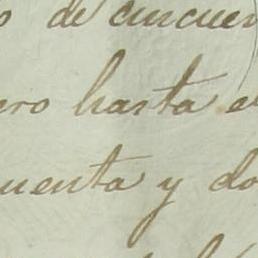 o de cincuen
ero hasta e
uenta y do